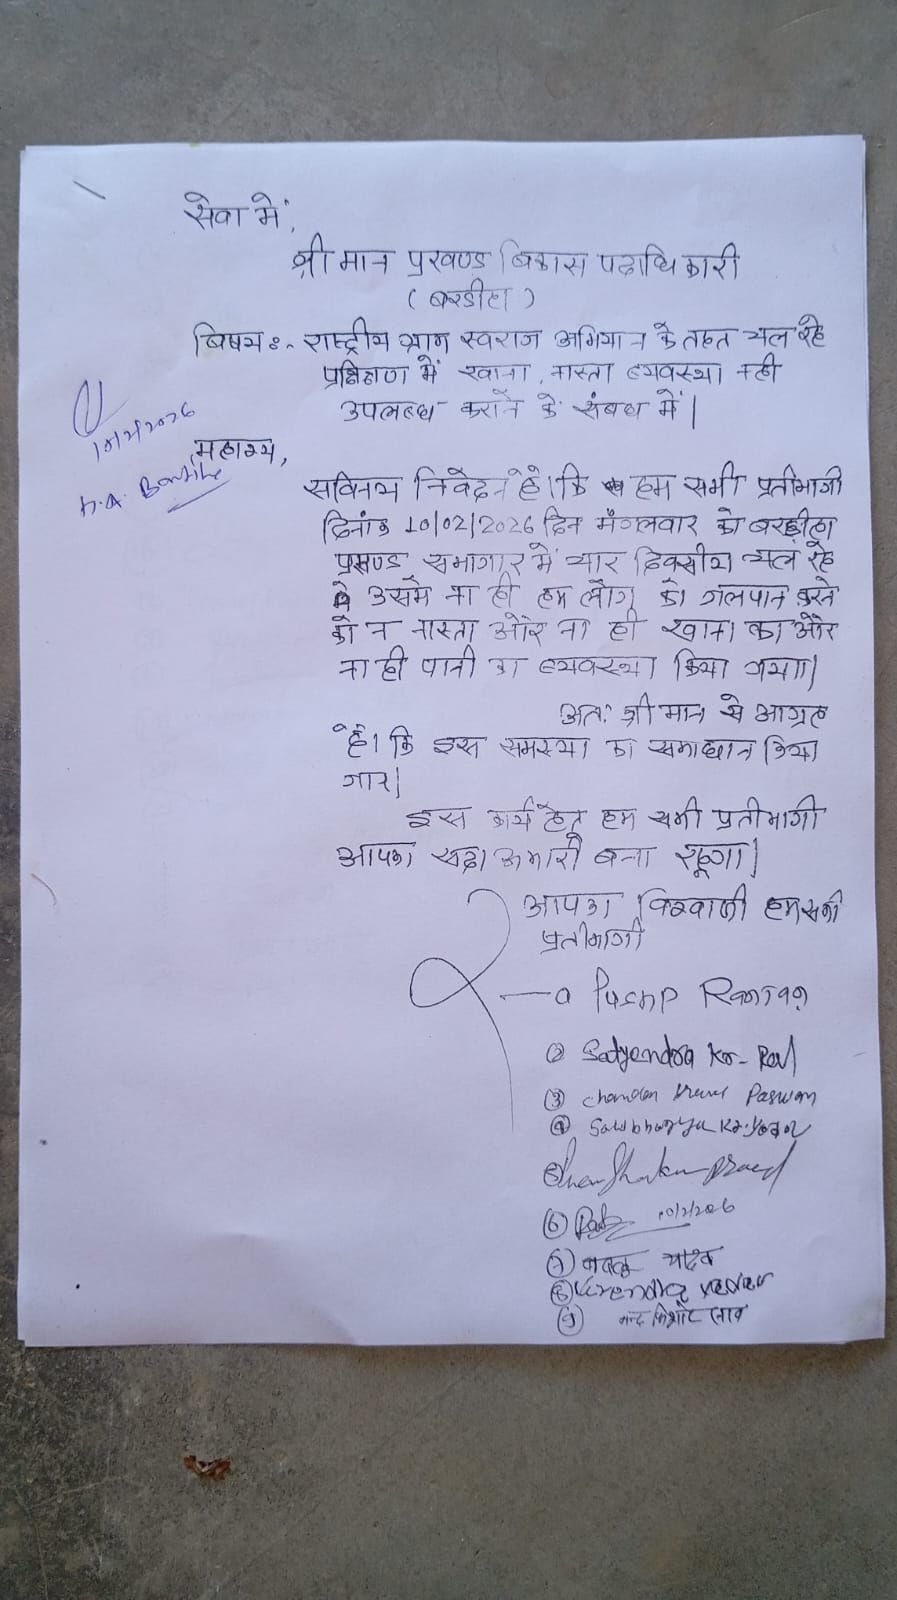 सेवा में,
श्री मान प्रखण्ड बिकास पदाधिकारी
(बरडीहा)
बिषय:- राष्ट्रीय ग्राम स्वराज अभियान के तहत चल रहे
प्रशिक्षण में खाना, नास्ता व्यवस्था नही
उपलब्ध कराने के संबंध में।
10/2/2026
महाशय,
सविनय निवेदन हैं। कि हम सभी प्रतीभागी
दिनांक 10/02/2026 दिन मंगलवार को बरडीहा
प्रखण्ड सभागार में चार दिवसीय चल रहे
उसमें ना ही हम लोग को जलपान करने
को न नास्ता और ना ही खाना का और
ना ही पानी का व्यवस्था किया गया।
अतः श्री मान से आग्रह
हैं। कि इस समस्या का समाधान किया
जाए।
इस कार्य हेतु हम सभी प्रतीभागी
आपका सदा अभारी बना रहूंगा।
आपका विश्वाशी हम सभी
प्रतीभागी
Pushp Ranjan
② Satyendra Kr. Ravi
③ Chandan Paswan
④ Saubhagya Kr. Yadav
⑥ 10/2/2026
⑦ बबलु यादव
⑧ Virendra Yadav
⑨ नन्द किशोर साव